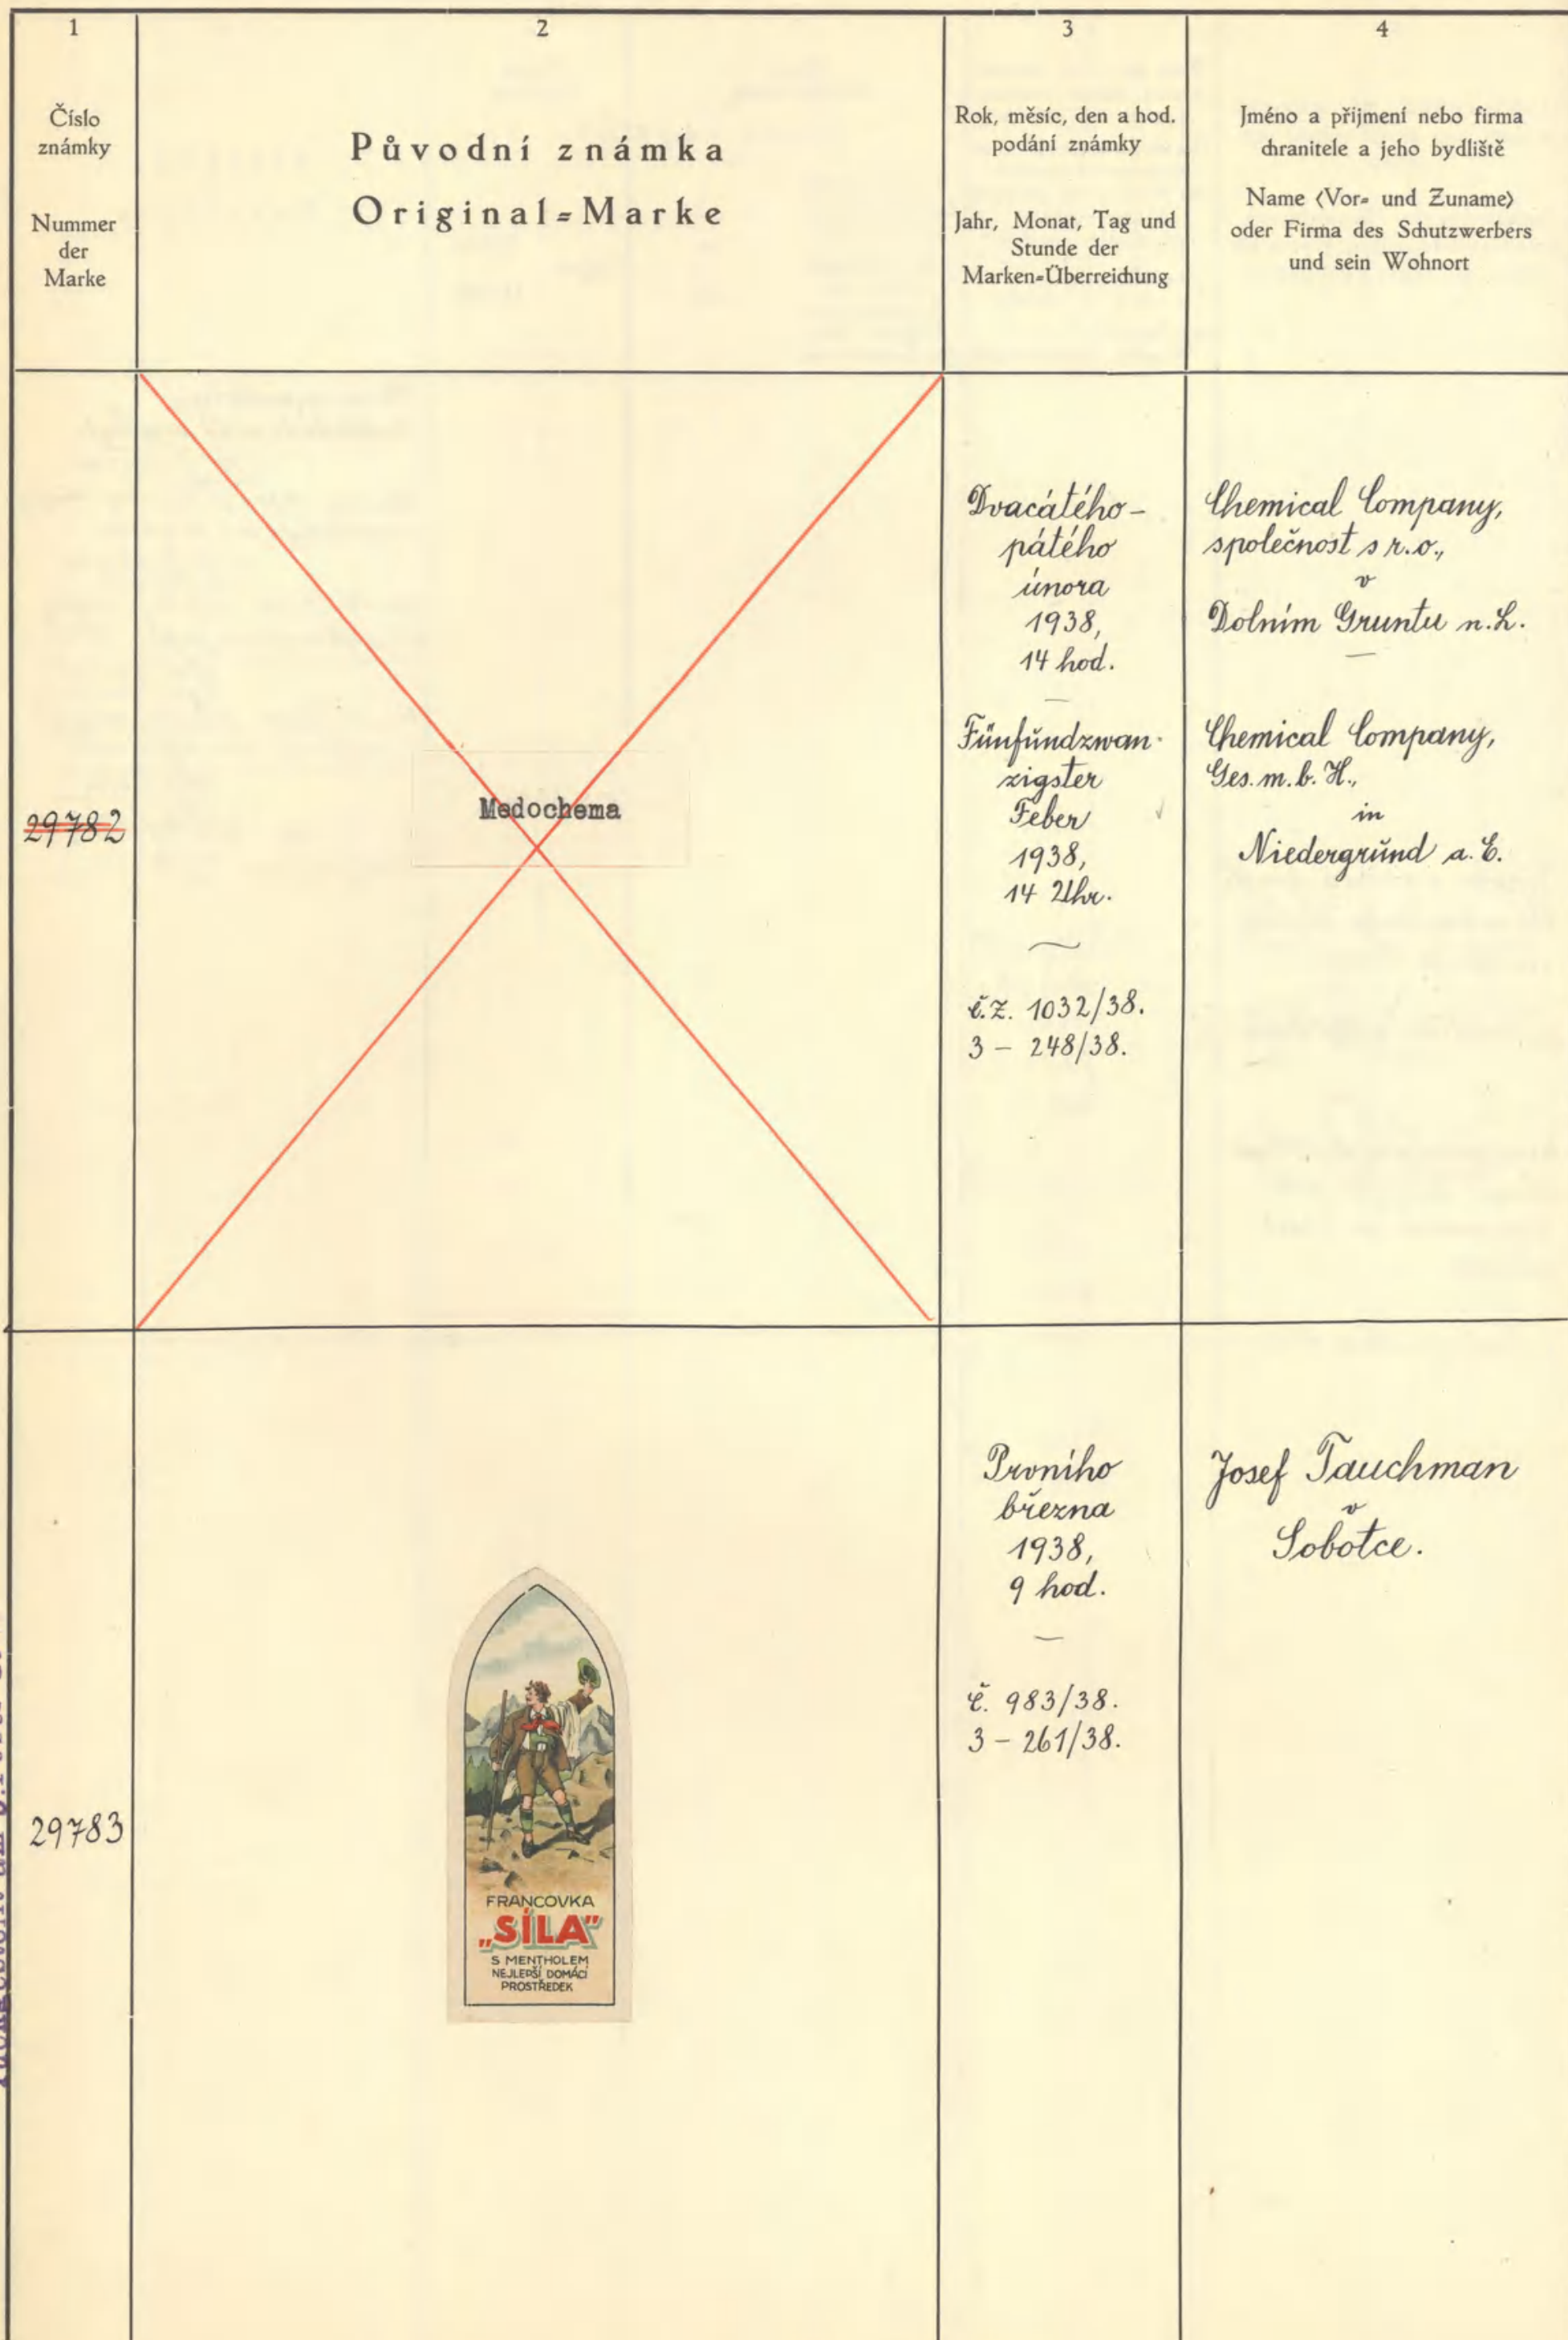 1
2
3
4
Číslo
známky
Nummer
der
Marke
Původní známka
Original=Marke
Rok, měsíc, den a hod.
podání známky
Jahr, Monat, Tag und
Stunde der
Marken=Überreichung
Jméno a přijmení nebo firma
chranitele a jeho bydliště
Name (Vor= und Zuname)
oder Firma des Schutzwerbers
und sein Wohnort
29782
Medochema
Dvacátého-
pátého
února
1938,
14 hod.
Fünfundzwan-
zigster
Feber
1938,
14 Uhr.
č.z. 1032/38.
3 - 248/38.
Chemical Company,
společnost s r.o.,
v
Dolním Gruntu n.L.
Chemical Company,
Ges. m. b. H.,
in
Niedergrund a. E.
29783
FRANCOVKA
„SÍLA"
S MENTHOLEM
NEJLEPŠÍ DOMÁCÍ
PROSTŘEDEK
Prvního
března
1938,
9 hod.
č. 983/38.
3 - 261/38.
Josef Tauchman
v
Sobotce.